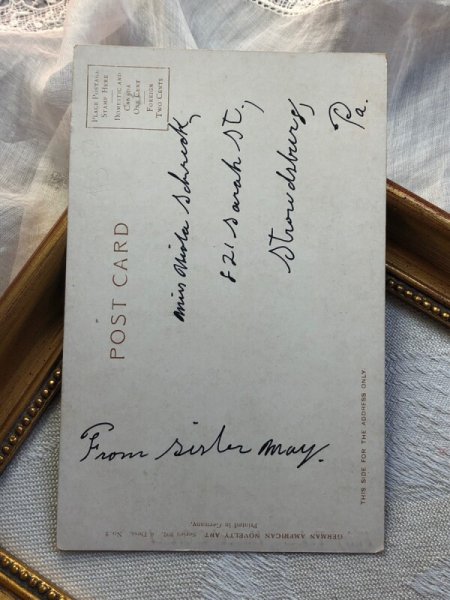 PLACE POSTAGE
STAMP HERE
DOMESTIC AND
CANADA
ONE CENT
FOREIGN
TWO CENTS
POST CARD
Miss Viola Schreck,
821 Sarah St.,
Stroudsburg,
Pa.
From Sister May.
THIS SIDE FOR THE ADDRESS ONLY.
GERMAN AMERICAN NOVELTY ART Series 4 Desi. No.
Printed in Germany.